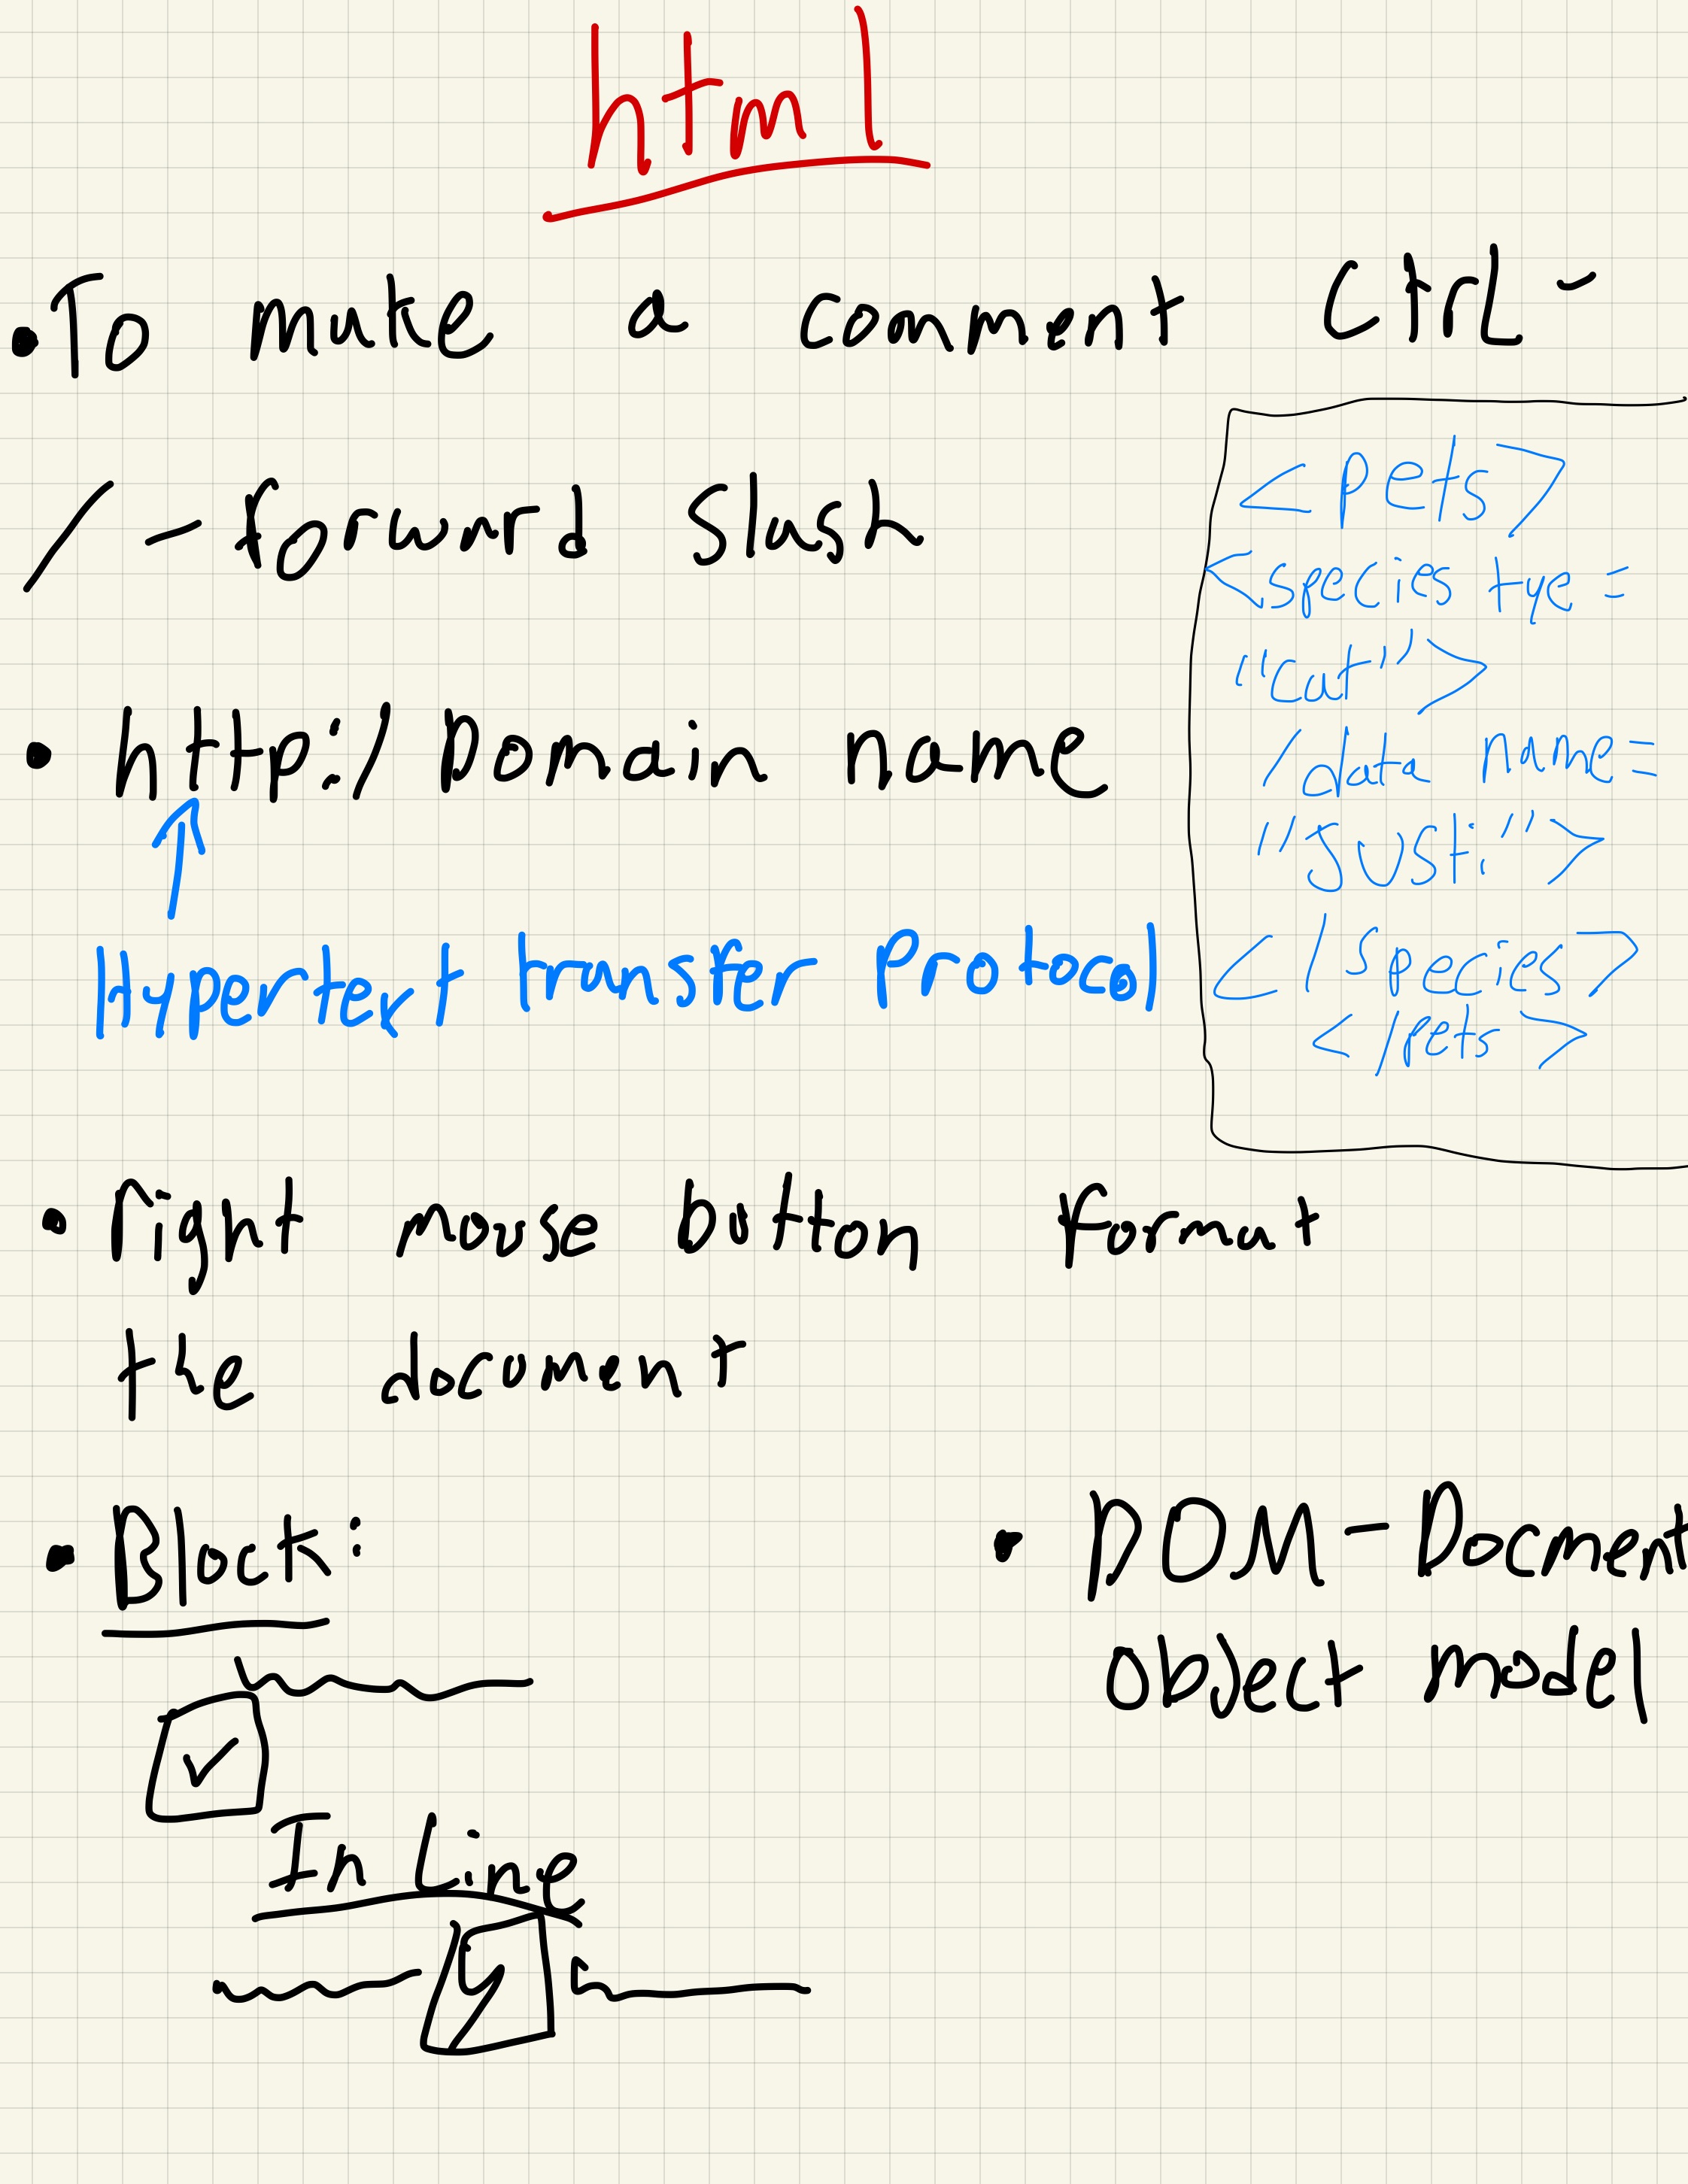 html
• To make a comment Ctrl -
/ - forward slash
• http:/ Domain name
Hypertext transfer Protocol
<pets>
<species tye =
"cat">
/data name=
"Justi">
</species>
</pets>
• right mouse button format
the document
• Block:
In Line
• DOM - Docment
object model